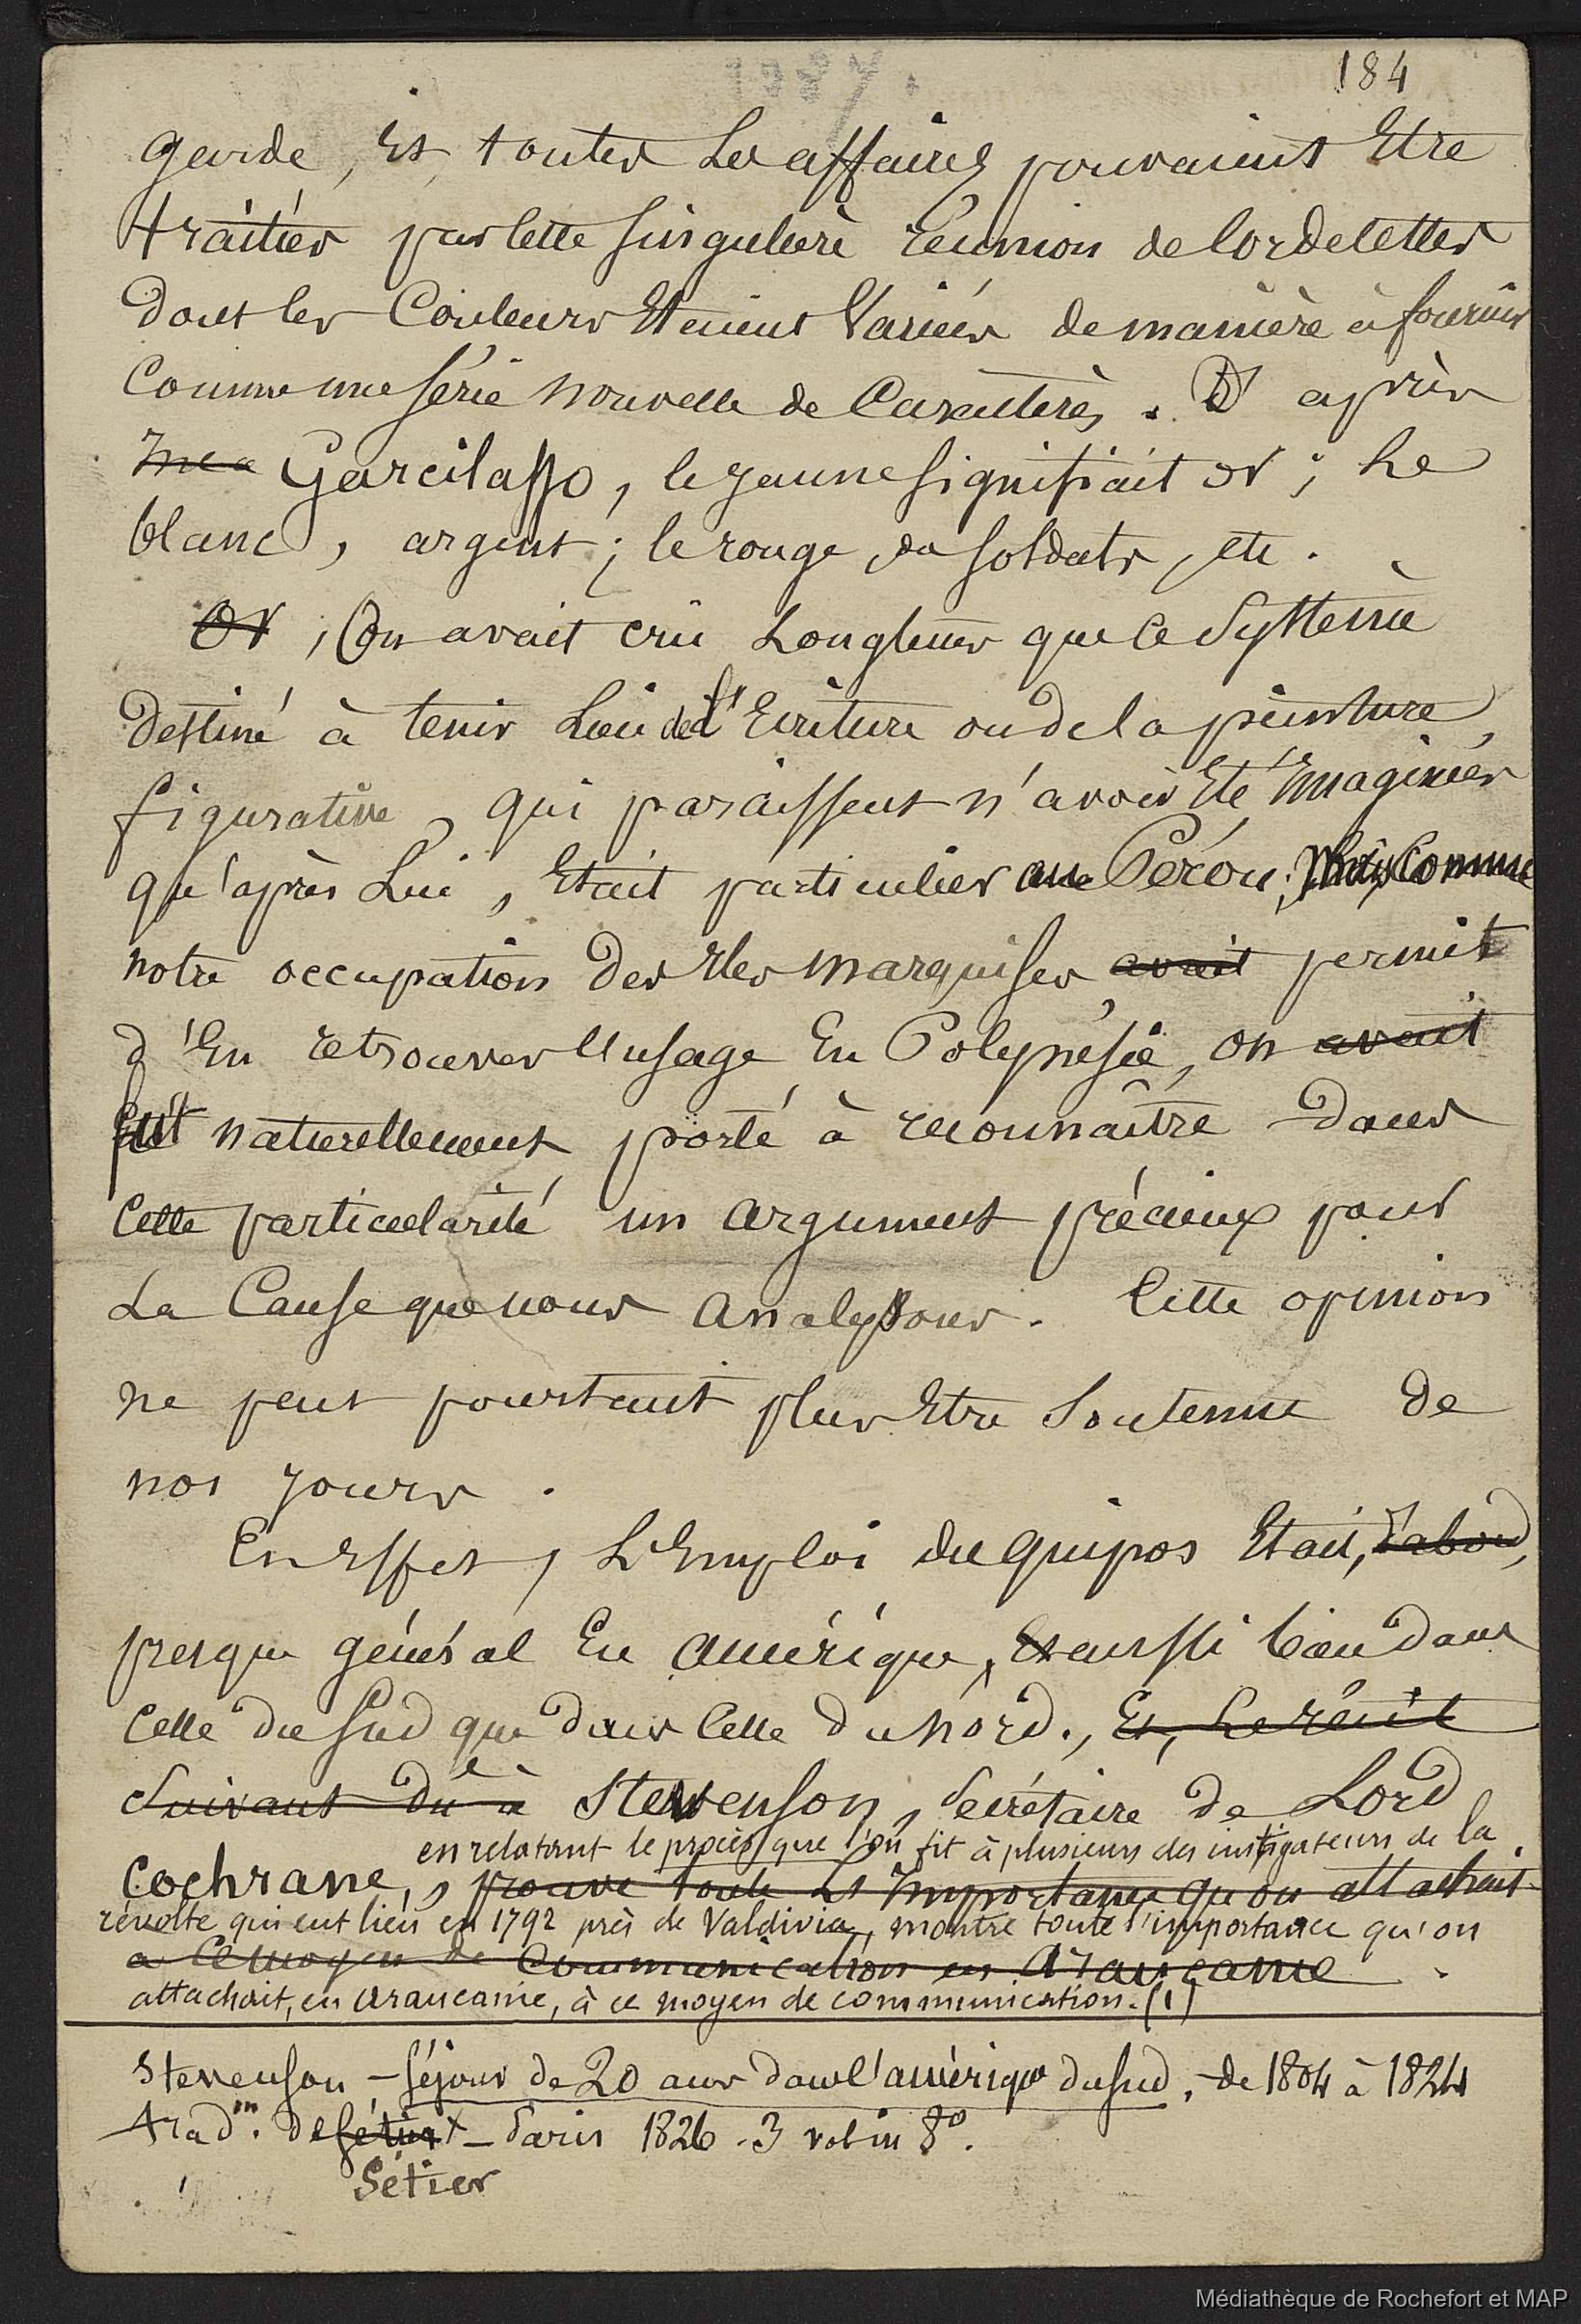 184
garde, Et toutes Les affaires pouvaient Etre
traitées par cette singulière réunion de cordelettes
dont les Couleurs Etaient Variées de manière à fournir
Comme une série nouvelle de Caractères. D'après
Inca Garcilasso, le jaune signifiait or ; Le
blanc, argent ; le rouge, du soldats, etc.
Or, On avait crû Longtems que ce Système
Destiné à tenir Lieu de l'Ecriture ou de la peinture
figurative, qui paraissent n'avoir Eté Imaginées
qu'après Lui, Etait particulier au Pérou ; Mais comme
notre occupation Des Iles marquises avait permit
d'En retrouver l'usage En Polynésie, on avait
fut naturellement porté à reconnaître Dans
Cette particularité un argument précieux pour
La Cause que nous Analysons. Cette opinion
ne peut pourtant plus Etre Soutenue De
nos jours.
En Effet, L'Emploi du quipos Etait, d'abord,
presque général En Amérique, Et aussi bien dans
Celle du Sud que dans Celle du Nord., Et, Le récit
Suivant dû à Stevenson, Secrétaire de Lord
en relatant le procès que l'on fit à plusieurs des instigateurs de la
Cochrane, prouve toute l'Importance qu'on attachait
révolte qui eut lieu en 1792 près de Valdivia, montre toute l'importance qu'on
a ce moyen de Communication en Araucanie.
attachait, en Araucanie, à ce moyen de communication. (1)
Stevenson - Séjour de 20 ans dans l'amérique du sud, - de 1804 à 1824
trad.on de - Paris 1826. 3 vol in 8°.
Sétier
Médiathèque de Rochefort et MAP